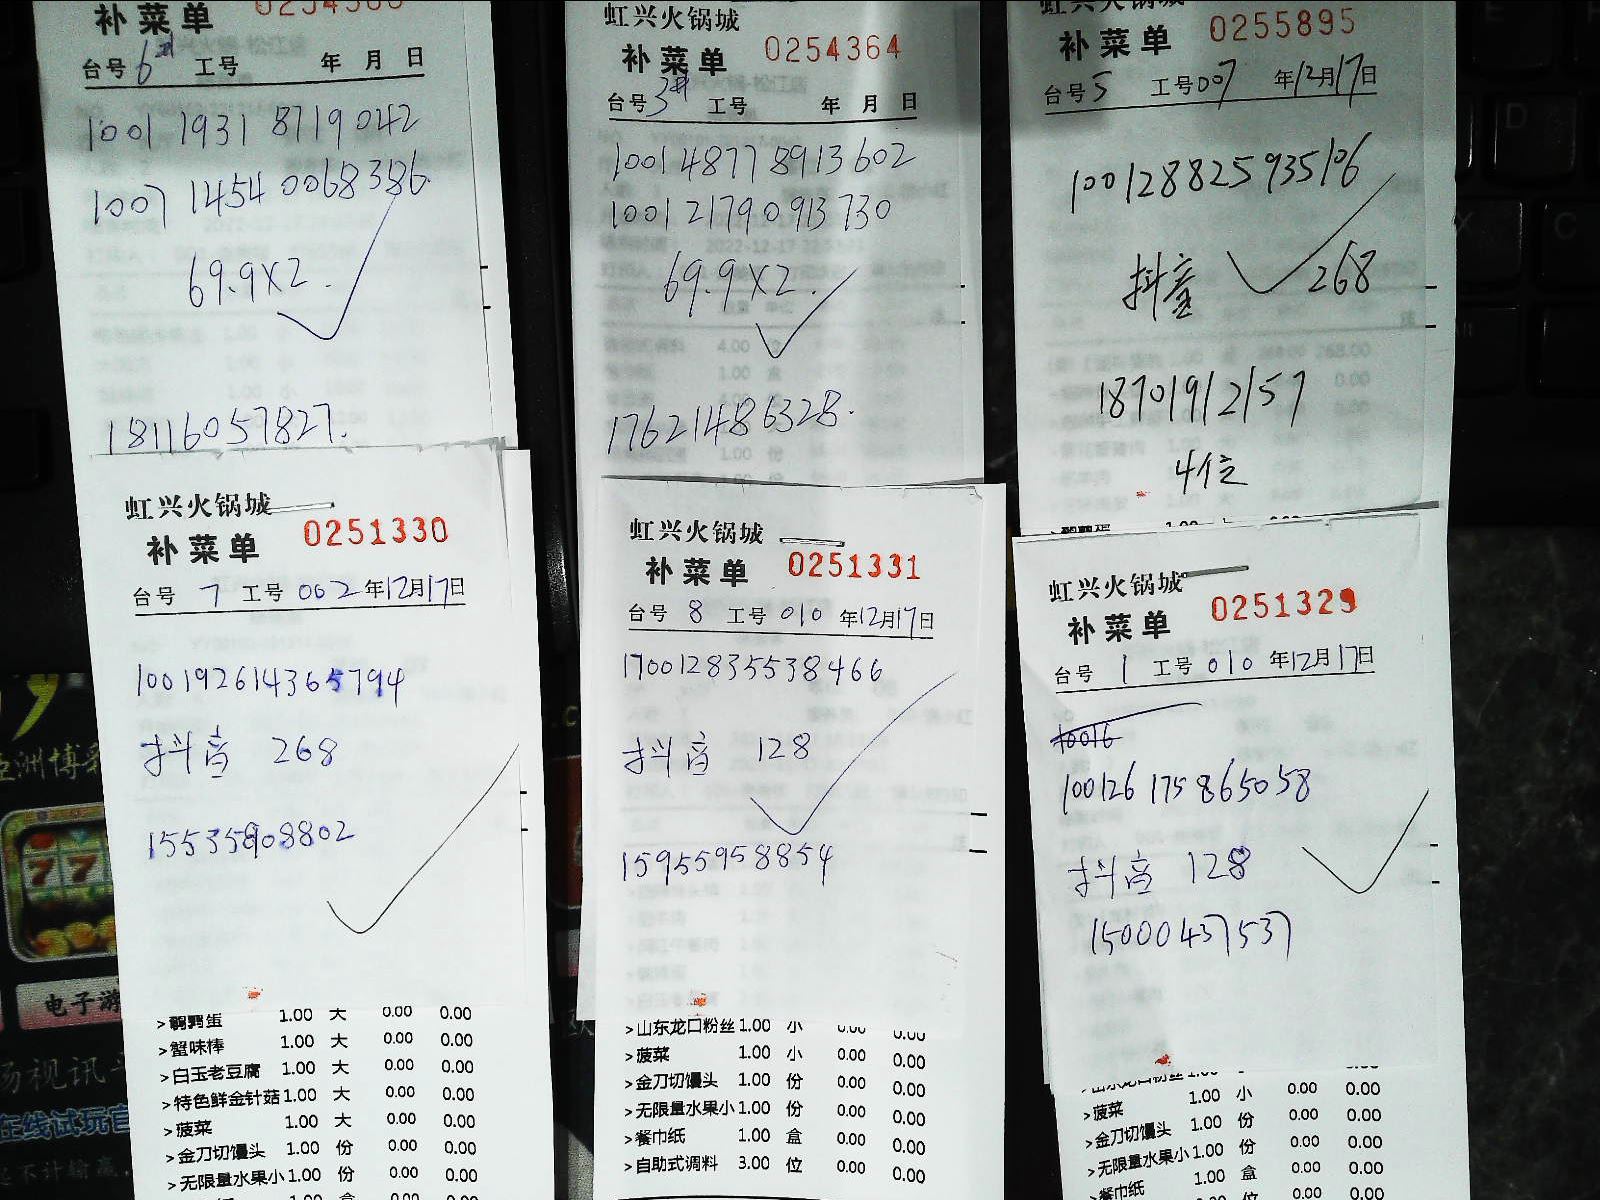 补菜单
台号 6 工号 年 月 日
1001 1931 8719042
1007 1454 0068386.
69.9X2.
18116057827.
虹兴火锅城
补菜单 0254364
台号 3 工号 年 月 日
1001 4877 8913602
1001 2179 0913 730
69.9X2.
17621486328.
虹兴火锅城
补菜单 0255895
台号 5 工号 007 年12月17日
100128825935106
抖音 268
18701912157
4位
虹兴火锅城
补菜单 0251330
台号 7 工号 002 年12月17日
100192614365794
抖音 268
15535908802
>鹌鹑蛋 1.00 大 0.00 0.00
>蟹味棒 1.00 大 0.00 0.00
>白玉老豆腐 1.00 大 0.00 0.00
>特色鲜金针菇 1.00 大 0.00 0.00
>菠菜 1.00 大 0.00 0.00
>金刀切馒头 1.00 份 0.00 0.00
>无限量水果小 1.00 份 0.00 0.00
虹兴火锅城
补菜单 0251331
台号 8 工号 010 年12月17日
170012835538466
抖音 128
15955958854
>山东龙口粉丝 1.00 小 0.00 0.00
>菠菜 1.00 小 0.00 0.00
>金刀切馒头 1.00 份 0.00 0.00
>无限量水果小 1.00 份 0.00 0.00
>餐巾纸 1.00 盒 0.00 0.00
>自助式调料 3.00 位 0.00 0.00
虹兴火锅城
补菜单 0251329
台号 1 工号 010 年12月17日
10016
100126 175 865058
抖音 128
15000437537
>山东龙口粉丝 1.00
>菠菜 1.00 小 0.00 0.00
>金刀切馒头 1.00 份 0.00 0.00
>无限量水果小 1.00 份 0.00 0.00
>餐巾纸 1.00 盒 0.00 0.00
位 0.00 0.00
电子游
场视讯
在线试玩官